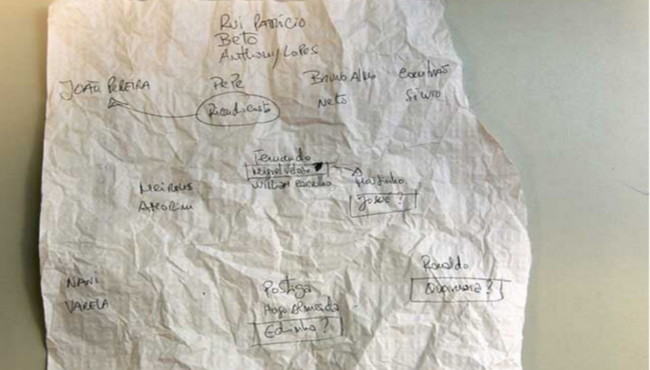 Rui Patrício
Beto
Anthony Lopes
João Pereira
Pepe
Ricardo Costa
Bruno Alves
Neto
Coentrão
Sílvio
Fernando
Miguel Veloso
William Carvalho
Meireles
Amorim
Moutinho
Josué?
Nani
Varela
Postiga
Hugo Almeida
Edinho?
Ronaldo
Quaresma?